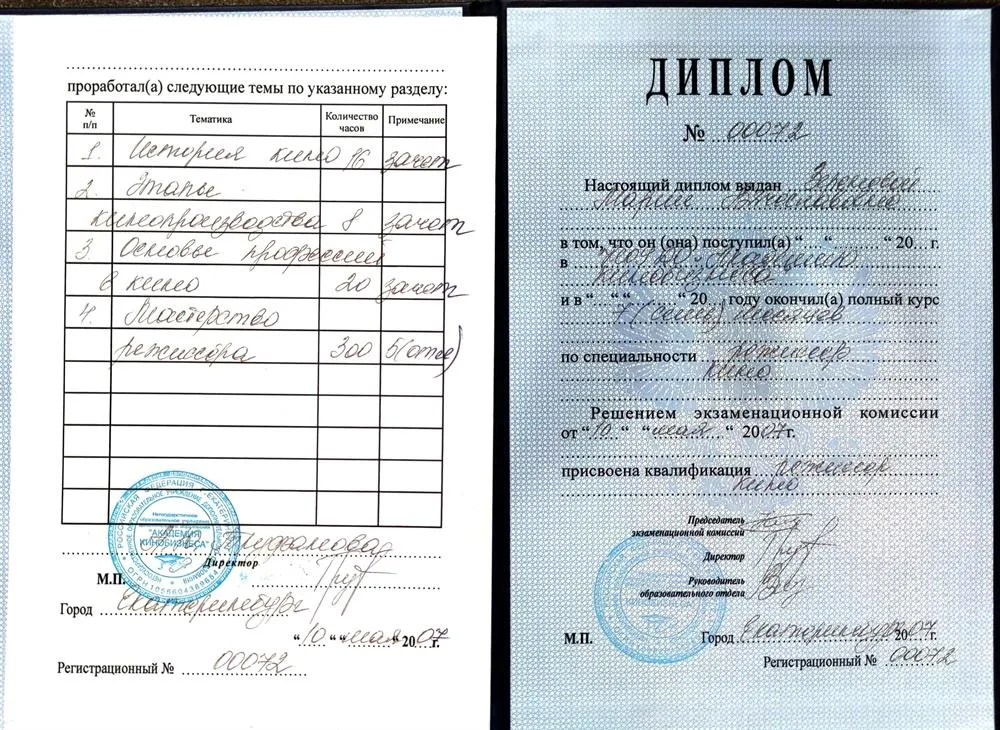 проработал(а) следующие темы по указанному разделу:
№ п/п Тематика Количество часов Примечание
1. История кино 16 зачет
2. Этапы
кинопроизводства 8 зачет
3. Основы профессии
в кино 20 зачет
4. Мастерство
режиссера 300 5(отл)
РОССИЙСКАЯ ФЕДЕРАЦИЯ
Негосударственное
образовательное учреждение
"АКАДЕМИЯ
КИНОБИЗНЕСА"
Директор
М.П.
Город Екатеринбург
"10" "мая" 2007 г.
Регистрационный № 00072
ДИПЛОМ
№ 00072
Настоящий диплом выдан
Марии
в том, что он (она) поступил(а) "..." "......" 20... г.
в НОУ ДО Академию
кинобизнеса
и в "..." "......" 20... году окончил(а) полный курс
7 (семь) месяцев
по специальности режиссер
кино
Решением экзаменационной комиссии
от "10" "мая" 2007г.
присвоена квалификация режиссер
кино
Председатель
экзаменационной комиссии
Директор
Руководитель
образовательного отдела
М.П. Город Екатеринбург 2007
Регистрационный № 00072